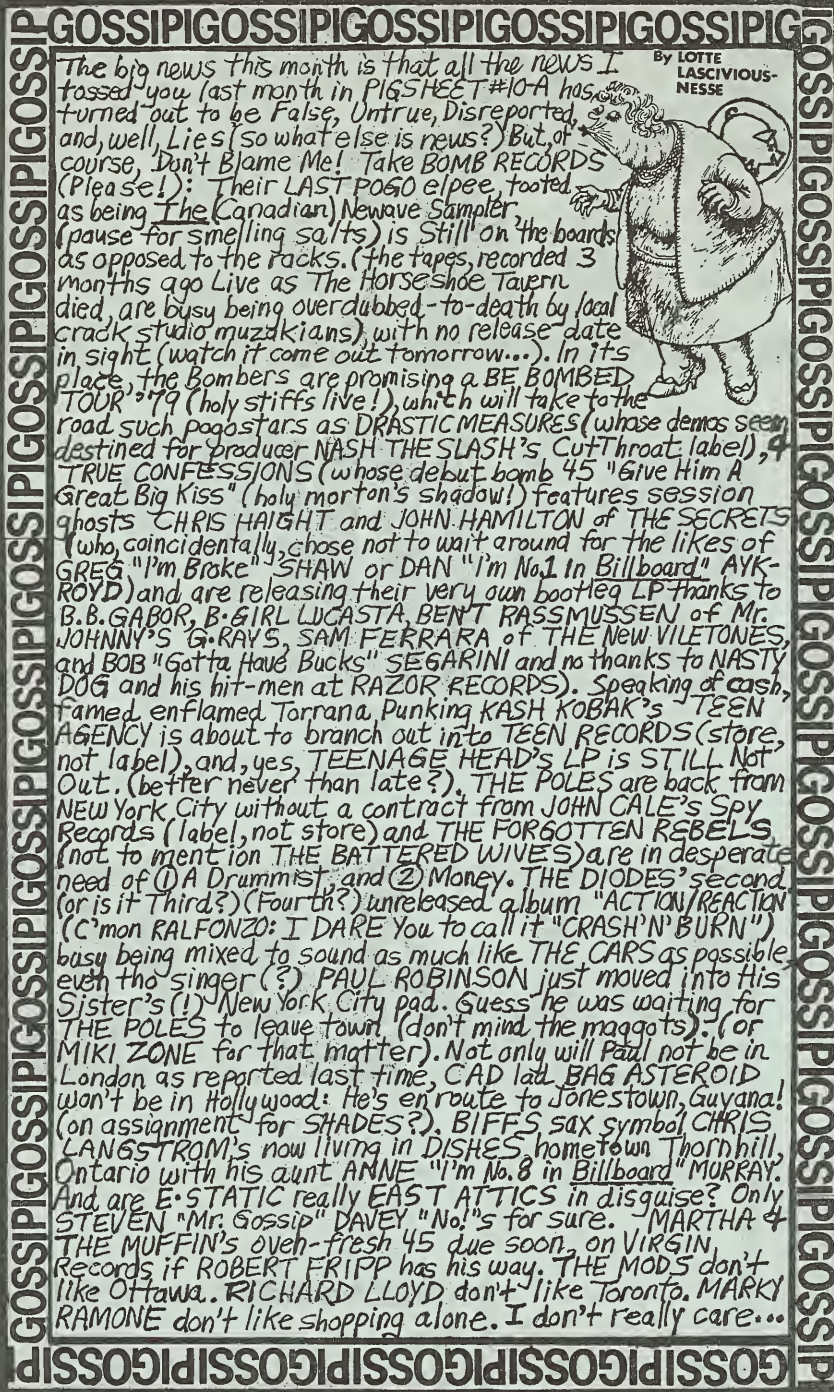 GOSSIPIGOSSIPIGOSSIPIGOSSIPIGOSSIPIGOSSIPIG
By LOTTE
LASCIVIOUS-
NESSE
The big news this month is that all the news I
tossed you last month in PIGSHEET #10-A has
turned out to be False, Untrue, Disreported,
and, well, Lies (so what else is news?) But, of
course, Don't Blame Me! Take BOMB RECORDS
(Please!): Their LAST POGO elpee, tooted
as being The (Canadian) Newave Sampler,
(pause for smelling salts) is Still on the boards
as opposed to the racks. (the tapes, recorded 3
months ago Live as The Horseshoe Tavern
died, are busy being overdubbed-to-death by local
crack studio muzakians), with no release date
in sight (watch it come out tomorrow...). In its
place, the Bombers are promising a BE BOMBED
TOUR '79 (holy stiffs live!), which will take to the
road such pogostars as DRASTIC MEASURES (whose demos seem
destined for producer NASH THE SLASH's CutThroat label), &
TRUE CONFESSIONS (whose debut bomb 45 "Give Him A
Great Big Kiss" (holy morton's shadow!) features session
ghosts CHRIS HAIGHT and JOHN HAMILTON of THE SECRETS
(who, coincidentally, chose not to wait around for the likes of
GREG "I'm Broke" SHAW or DAN "I'm No.1 In Billboard" AYK-
ROYD) and are releasing their very own bootleg LP thanks to
B.B. GABOR, B-GIRL LUCASTA, BENT RASSMUSSEN of Mr.
JOHNNY'S G-RAYS, SAM FERRARA of THE New VILETONES,
and BOB "Gotta Have Bucks" SEGARINI and no thanks to NASTY
DOG and his hit-men at RAZOR RECORDS). Speaking of cash,
famed enflamed Torrana Punking KASH KOBAK's TEEN
AGENCY is about to branch out into TEEN RECORDS (store,
not label), and, yes, TEENAGE HEAD's LP is STILL Not
Out. (better never than late?). THE POLES are back from
NEW York City without a contract from JOHN CALE's Spy
Records (label, not store) and THE FORGOTTEN REBELS
(not to mention THE BATTERED WIVES) are in desperate
need of ① A Drummist, and ② Money. THE DIODES' second
(or is it Third?) (Fourth?) unreleased album "ACTION/REACTION"
(C'mon RALFONZO: I DARE You to call it "CRASH'N'BURN")
busy being mixed to sound as much like THE CARS as possible,
even tho singer (?) PAUL ROBINSON just moved into His
Sister's (!) New York City pad. Guess he was waiting for
THE POLES to leave town (don't mind the maggots). (or
MIKI ZONE for that matter). Not only will Paul not be in
London as reported last time, CAD lad BAG ASTEROID
won't be in Hollywood: He's en route to Jonestown, Guyana!
(on assignment for SHADES?). BIFFS sax symbol CHRIS
LANGSTROM's now living in DISHES hometown Thornhill,
Ontario with his aunt ANNE "I'm No.8 in Billboard" MURRAY.
And are E·STATIC really EAST ATTICS in disguise? Only
STEVEN "Mr. Gossip" DAVEY "No!"s for sure. MARTHA &
THE MUFFIN's oven-fresh 45 due soon, on VIRGIN
Records if ROBERT FRIPP has his way. THE MODS don't
like Ottawa. RICHARD LLOYD don't like Toronto. MARKY
RAMONE don't like shopping alone. I don't really care...
GOSSIPIGOSSIPIGOSSIPIGOSSIPIGOSSIPIGOSSIPI
GOSSIPIGOSSIPIGOSSIPIGOSSIPIGOSSIPIGOSSIPI
GOSSIPIGOSSIPIGOSSIPIGOSSIPIGOSSIPI